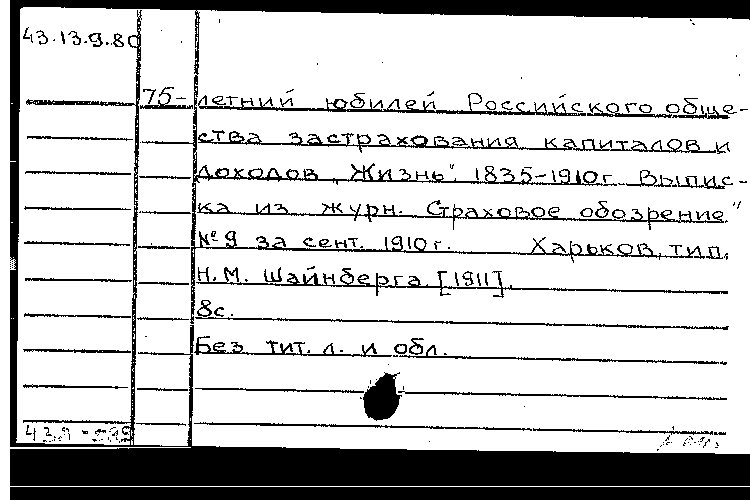 43.13.9.80
75-летний юбилей Российского обще-
ства застрахования капиталов и
доходов „Жизнь“. 1835-1910г. Выпис-
ка из журн. Страховое обозрение"
№9 за сент. 1910г. Харьков, тип.
Н.М. Шайнберга. [1911].
8с.
Без тит. л. и обл.